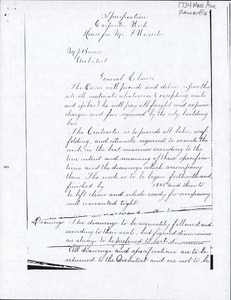 1734 Mass Ave
Specification
Carpenter Work
House for Mr F
Architect
General Clause
The Owner will provide and deliver upon the
site all materials whatsoever (excepting nails
and spikes) he will pay all freight and express
charges and fees required by the city building
law
The Contractor is to provide all labor, scaf-
folding, and utensils required to execute the
work in the best manner according to the
true intent and meaning of these specifica-
tions and the drawings which accompany
them. The work is to be begun forthwith and
finished by 1885 and thence to
be left clean and whole ready for occupancy
and warranted tight
Drawings The drawings to be accurately followed and
according to their scale, but figured dimensions
are always to be preferred to
All drawings and specifications are to be
returned to the Architect and are not to be